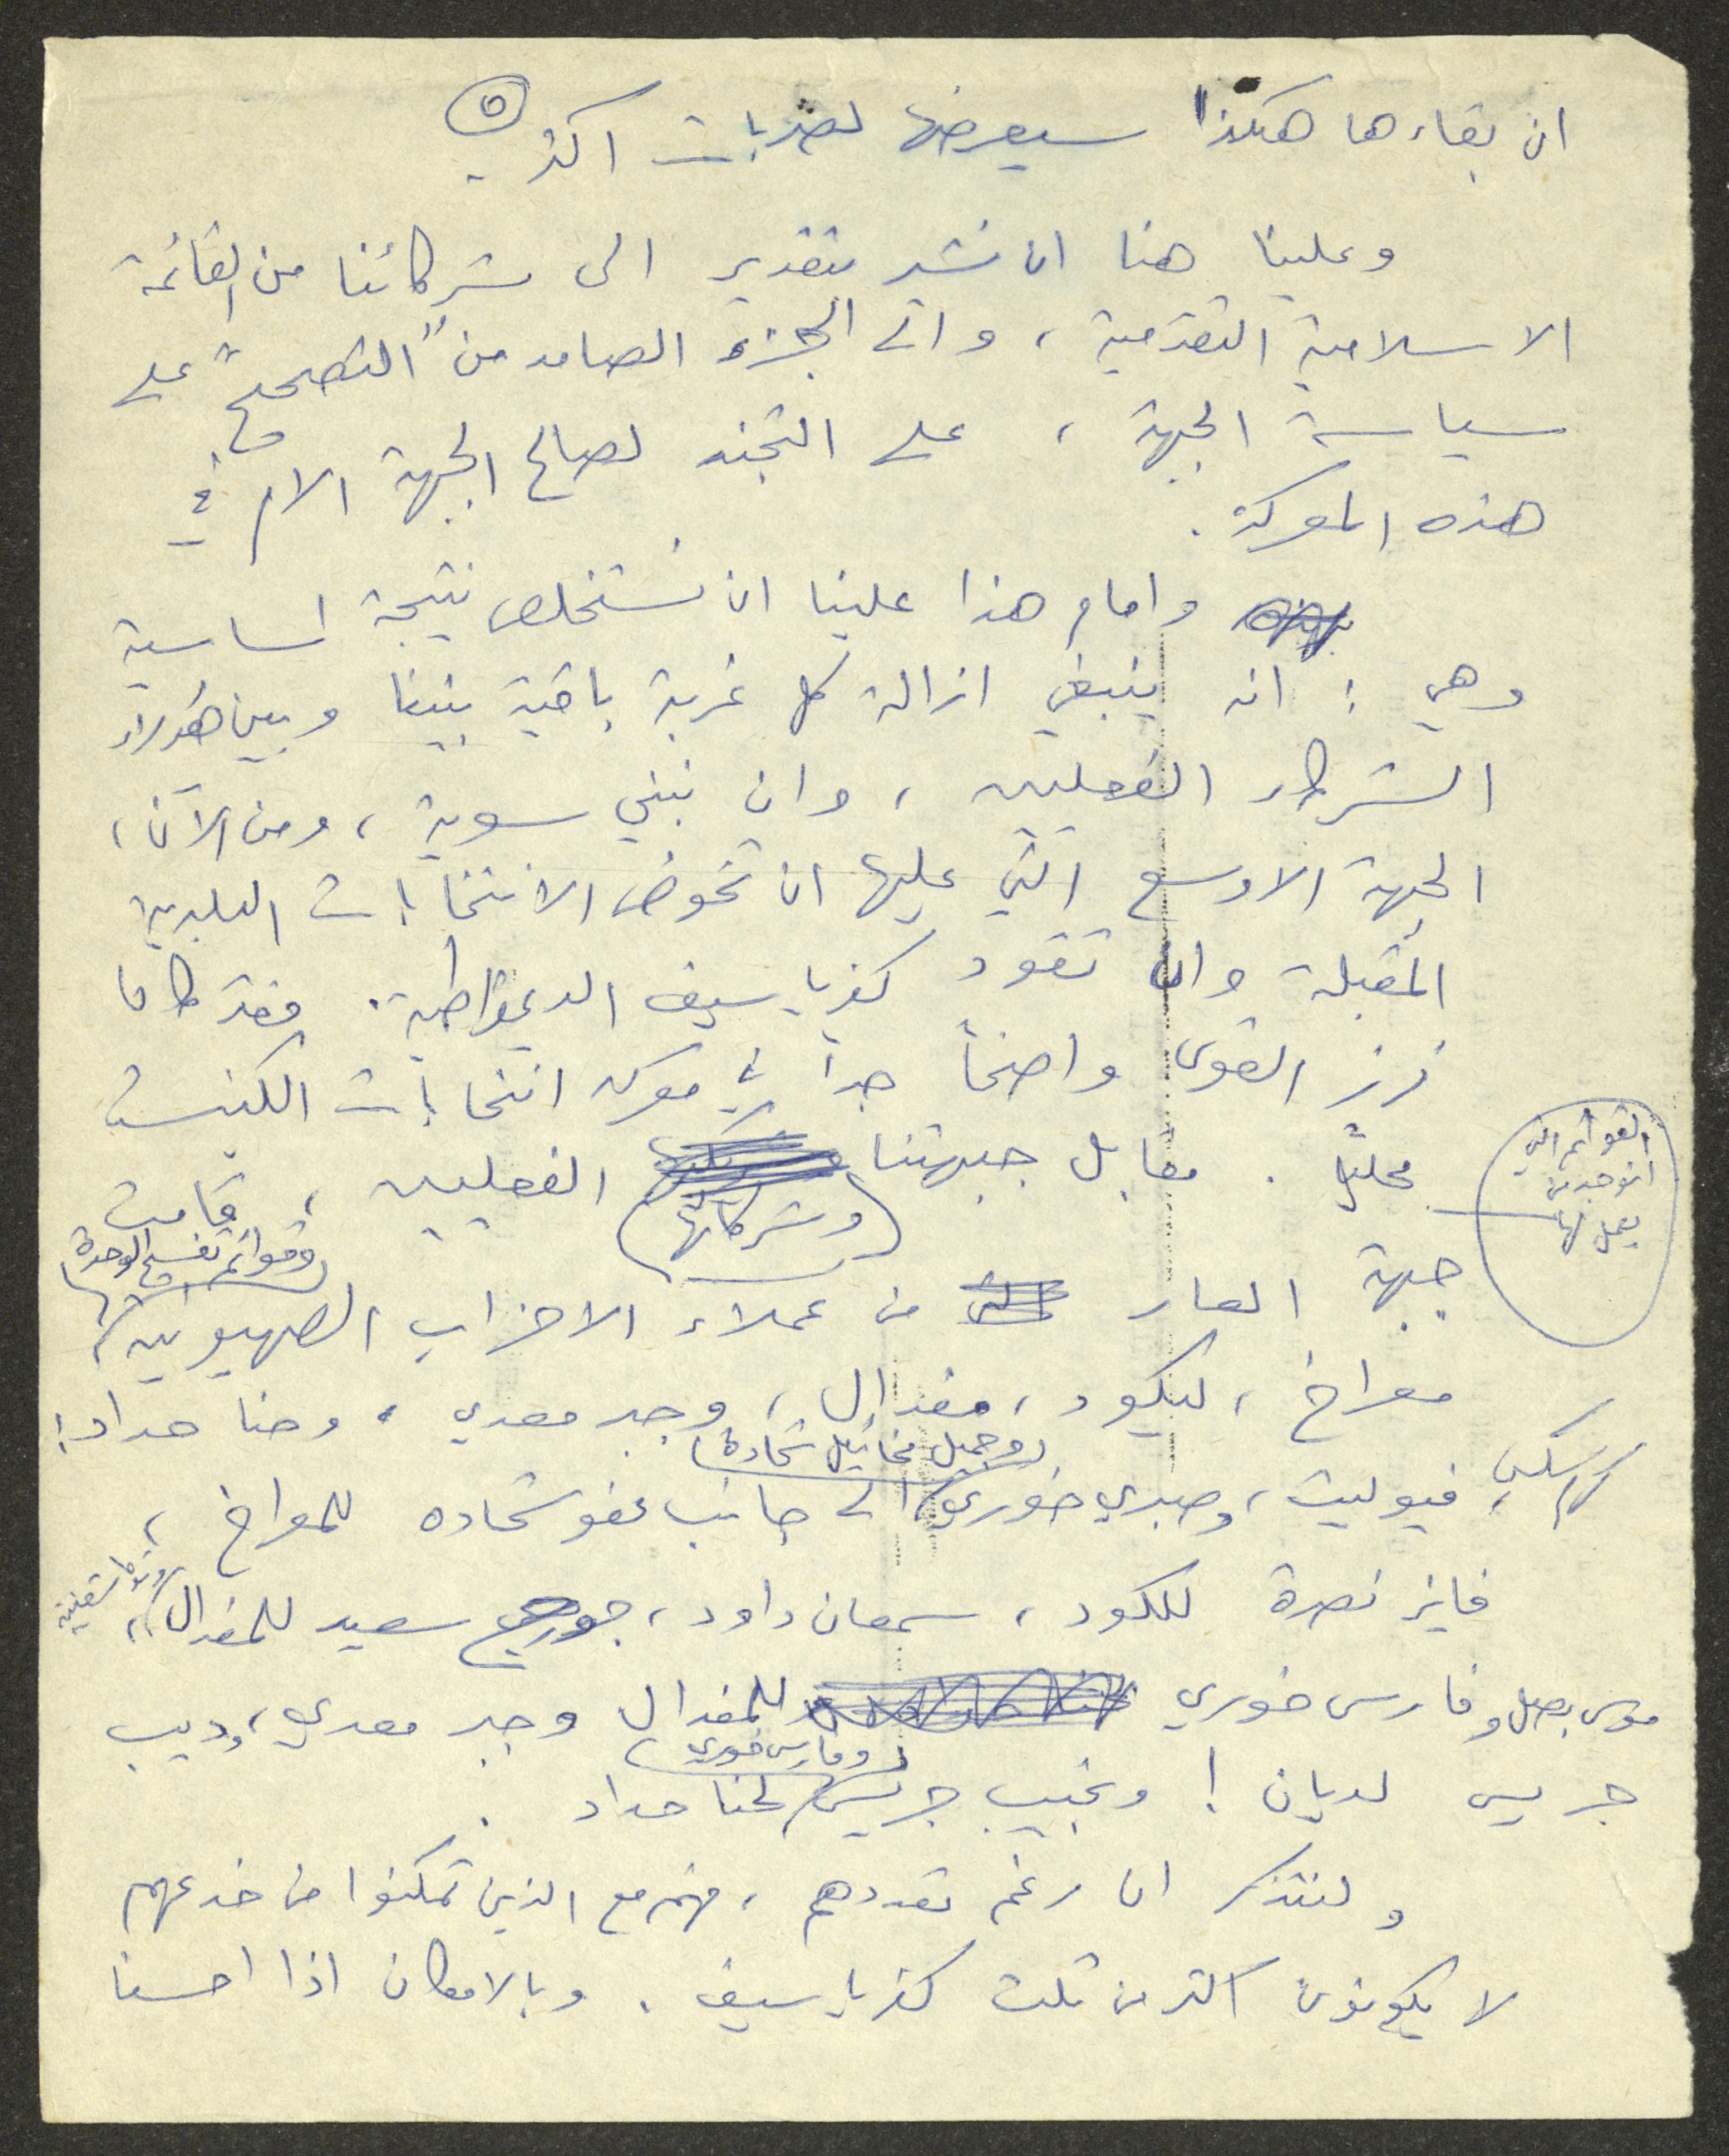 ٥
ان بقاءها هكذا سيعرضها لضربات اكثر
وعلينا هنا ان نشير بتقدير الى شركائنا من القائمة
الاسلامية التقدمية ، والى الجزء الصامد من "التصحيح" على
سياسة الجبهة ، على التجند لصالح الجبهة الام في
هذه المعركة .
وامام هذا علينا ان نستخلص نتيجة اساسية
وهي : انه ينبغي ازالة كل غربة باقية بيننا وبين هؤلاء
الشركاء الفعليين ، وان نبني سوية ، ومن الآن ،
الجبهة الاوسع التي عليها ان تخوض الانتخابات البلدية
المقبلة وان تقود كفرياسيف الديمقراطية . فقد كان
فرز القوى واضحاً جدا في معركه انتخابات الكنيست
محلياً . مقابل جبهتنا وشركائها الفعليين ، قامت
القوائم التي
يعمل لها
وقوائم تفسيخ الوحدة
جبهة العار من عملاء الاحزاب الصهيونيه ،
معراخ ، ليكود ، مفدال ، وجبر معدي ، وحنا حداد :
وجميل مخائيل شحادة
فيوليت ، وصبري خوري الى جانب عفو شحاده للمعراخ ،
فايز نصرة للكود ، سمعان داود ، جورج سعيد للمفدال ،
موسى بصل وفارس خوري للمفدال وجبر معدي ، وديب
وفارس خوري
جريس لديان ! ونجيب جريس لحنا حداد .
ولنتذكر ان رغم تعددهم ، فهم مع الذين تمكنوا من خدعهم
لا يكونون اكثر من ثلث كفرياسيف . وبالامكان اذا احسنا